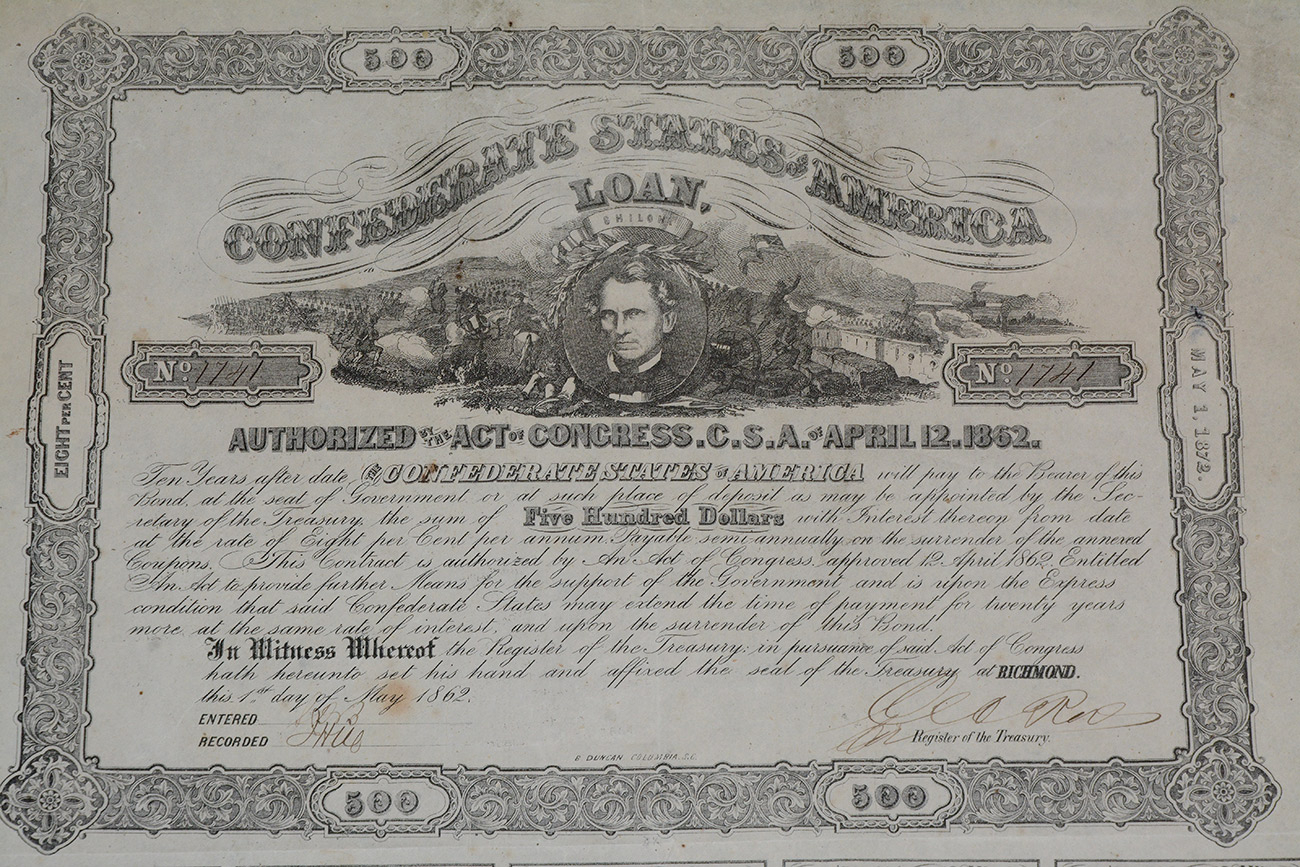 500 500
CONFEDERATE STATES of AMERICA
LOAN,
SHILOH
No. 1741 No. 1741
EIGHT PER CENT
MAY 1. 1872.
AUTHORIZED BY THE ACT OF CONGRESS. C.S.A. OF APRIL 12. 1862.
Ten Years after date, THE CONFEDERATE STATES OF AMERICA will pay to the Bearer of this
Bond, at the seat of Government or at such place of deposit as may be appointed by the Sec-
retary of the Treasury, the sum of Five Hundred Dollars with Interest thereon from date
at the rate of Eight per Cent per annum, Payable semi-annually, on the surrender of the annexed
Coupons. This Contract is authorized by An Act of Congress, approved 12 April 1862, Entitled
"An Act to provide further Means for the support of the Government" and is upon the Express
condition that said Confederate States may extend the time of payment for twenty years
more, at the same rate of interest, and upon the surrender of this Bond.
In Witness Whereof the Register of the Treasury, in pursuance of said Act of Congress
hath hereunto set his hand and affixed the seal of the Treasury at RICHMOND.
this 1st day of May 1862.
ENTERED
RECORDED
Register of the Treasury.
B DUNCAN COLUMBIA, S.C.
500 500